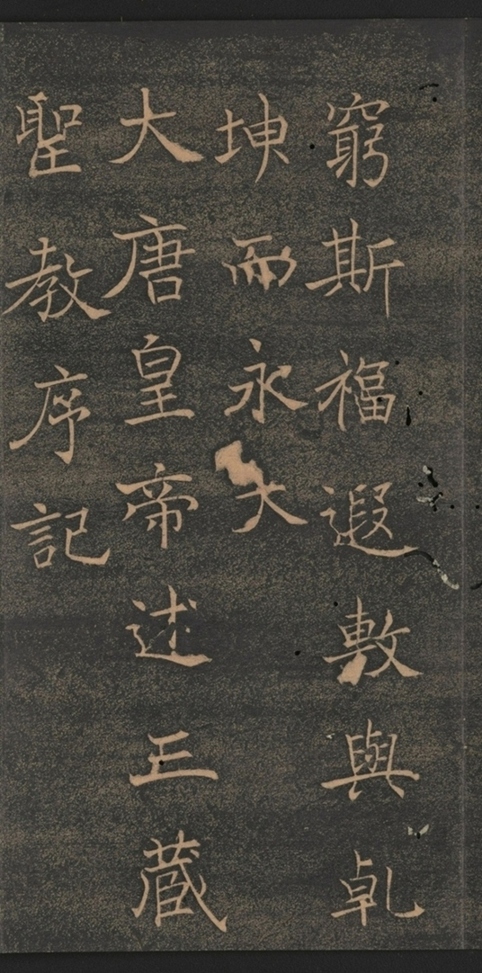 窮斯福遐敷與乹
坤而永大
大唐皇帝述三藏
聖教序記